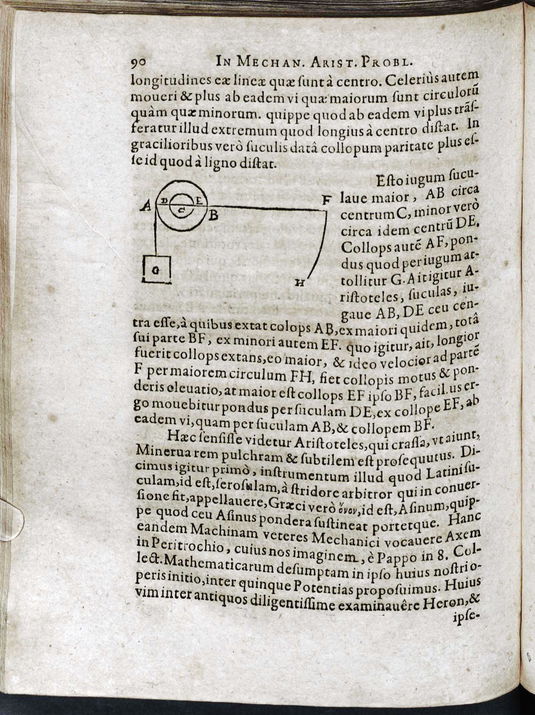 90 IN MECHAN. ARIST. PROBL.
longitudines eæ lineæ quæ sunt à centro. Celeriùs autem
moueri & plus ab eadem vi quæ maiorum sunt circulorū
quàm quæ minorum. quippe quod ab eadem vi plus trāſ-
feratur illud extremum quod longius à centro diſtat. In
gracilioribus verò ſuculis datâ collopum paritate plus eſ-
ſe id quod à ligno diſtat.
Eſto iugum ſucu-
laue maior, AB circa
centrum C, minor verò
circa idem centrū DE,
Collops autē AF, pon-
dus quod per iugum at-
tollitur G. Ait igitur A-
riſtoteles, ſuculas, iu-
gaue AB, DE ceu cen-
A D E C B F G H
tra eſſe, à quibus extat colops AB, ex maiori quidem, totâ
ſui parte BF, ex minori autem EF. quo igitur, ait, longior
fuerit collops extans, eo maior, & ideo velocior ad partē
F per maiorem circulum FH, fiet collopis motus & pon-
deris eleuatio, at maior eſt collops EF ipſo BF, facilius er-
go mouebitur pondus per ſuculam DE, ex collope EF, ab
eadem vi, quam per ſuculam AB, & collopem BF.
Hæc ſenſiſſe videtur Ariſtoteles, qui craſſa, vt aiunt,
Minerua rem pulchram & ſubtilem eſt proſequutus. Di-
cimus igitur primò, inſtrumentum illud quod Latini ſu-
culam, id eſt, ſerofulam, à ſtridore arbitror qui in conuer-
ſione fit, appellauere, Græci verò ὄνον, id eſt, Aſinum, quip-
pe quod ceu Aſinus pondera ſuſtineat portetque. Hanc
eandem Machinam veteres Mechanici vocauere Axem
in Peritrochio, cuius nos imaginem, è Pappo in 8. Col-
lect. Mathematicarum deſumptam in ipſo huius noſtri o-
peris initio, inter quinque Potentias propoſuimus. Huius
vim inter antiquos diligentiſſime examinauêre Heron, &
ipſe-